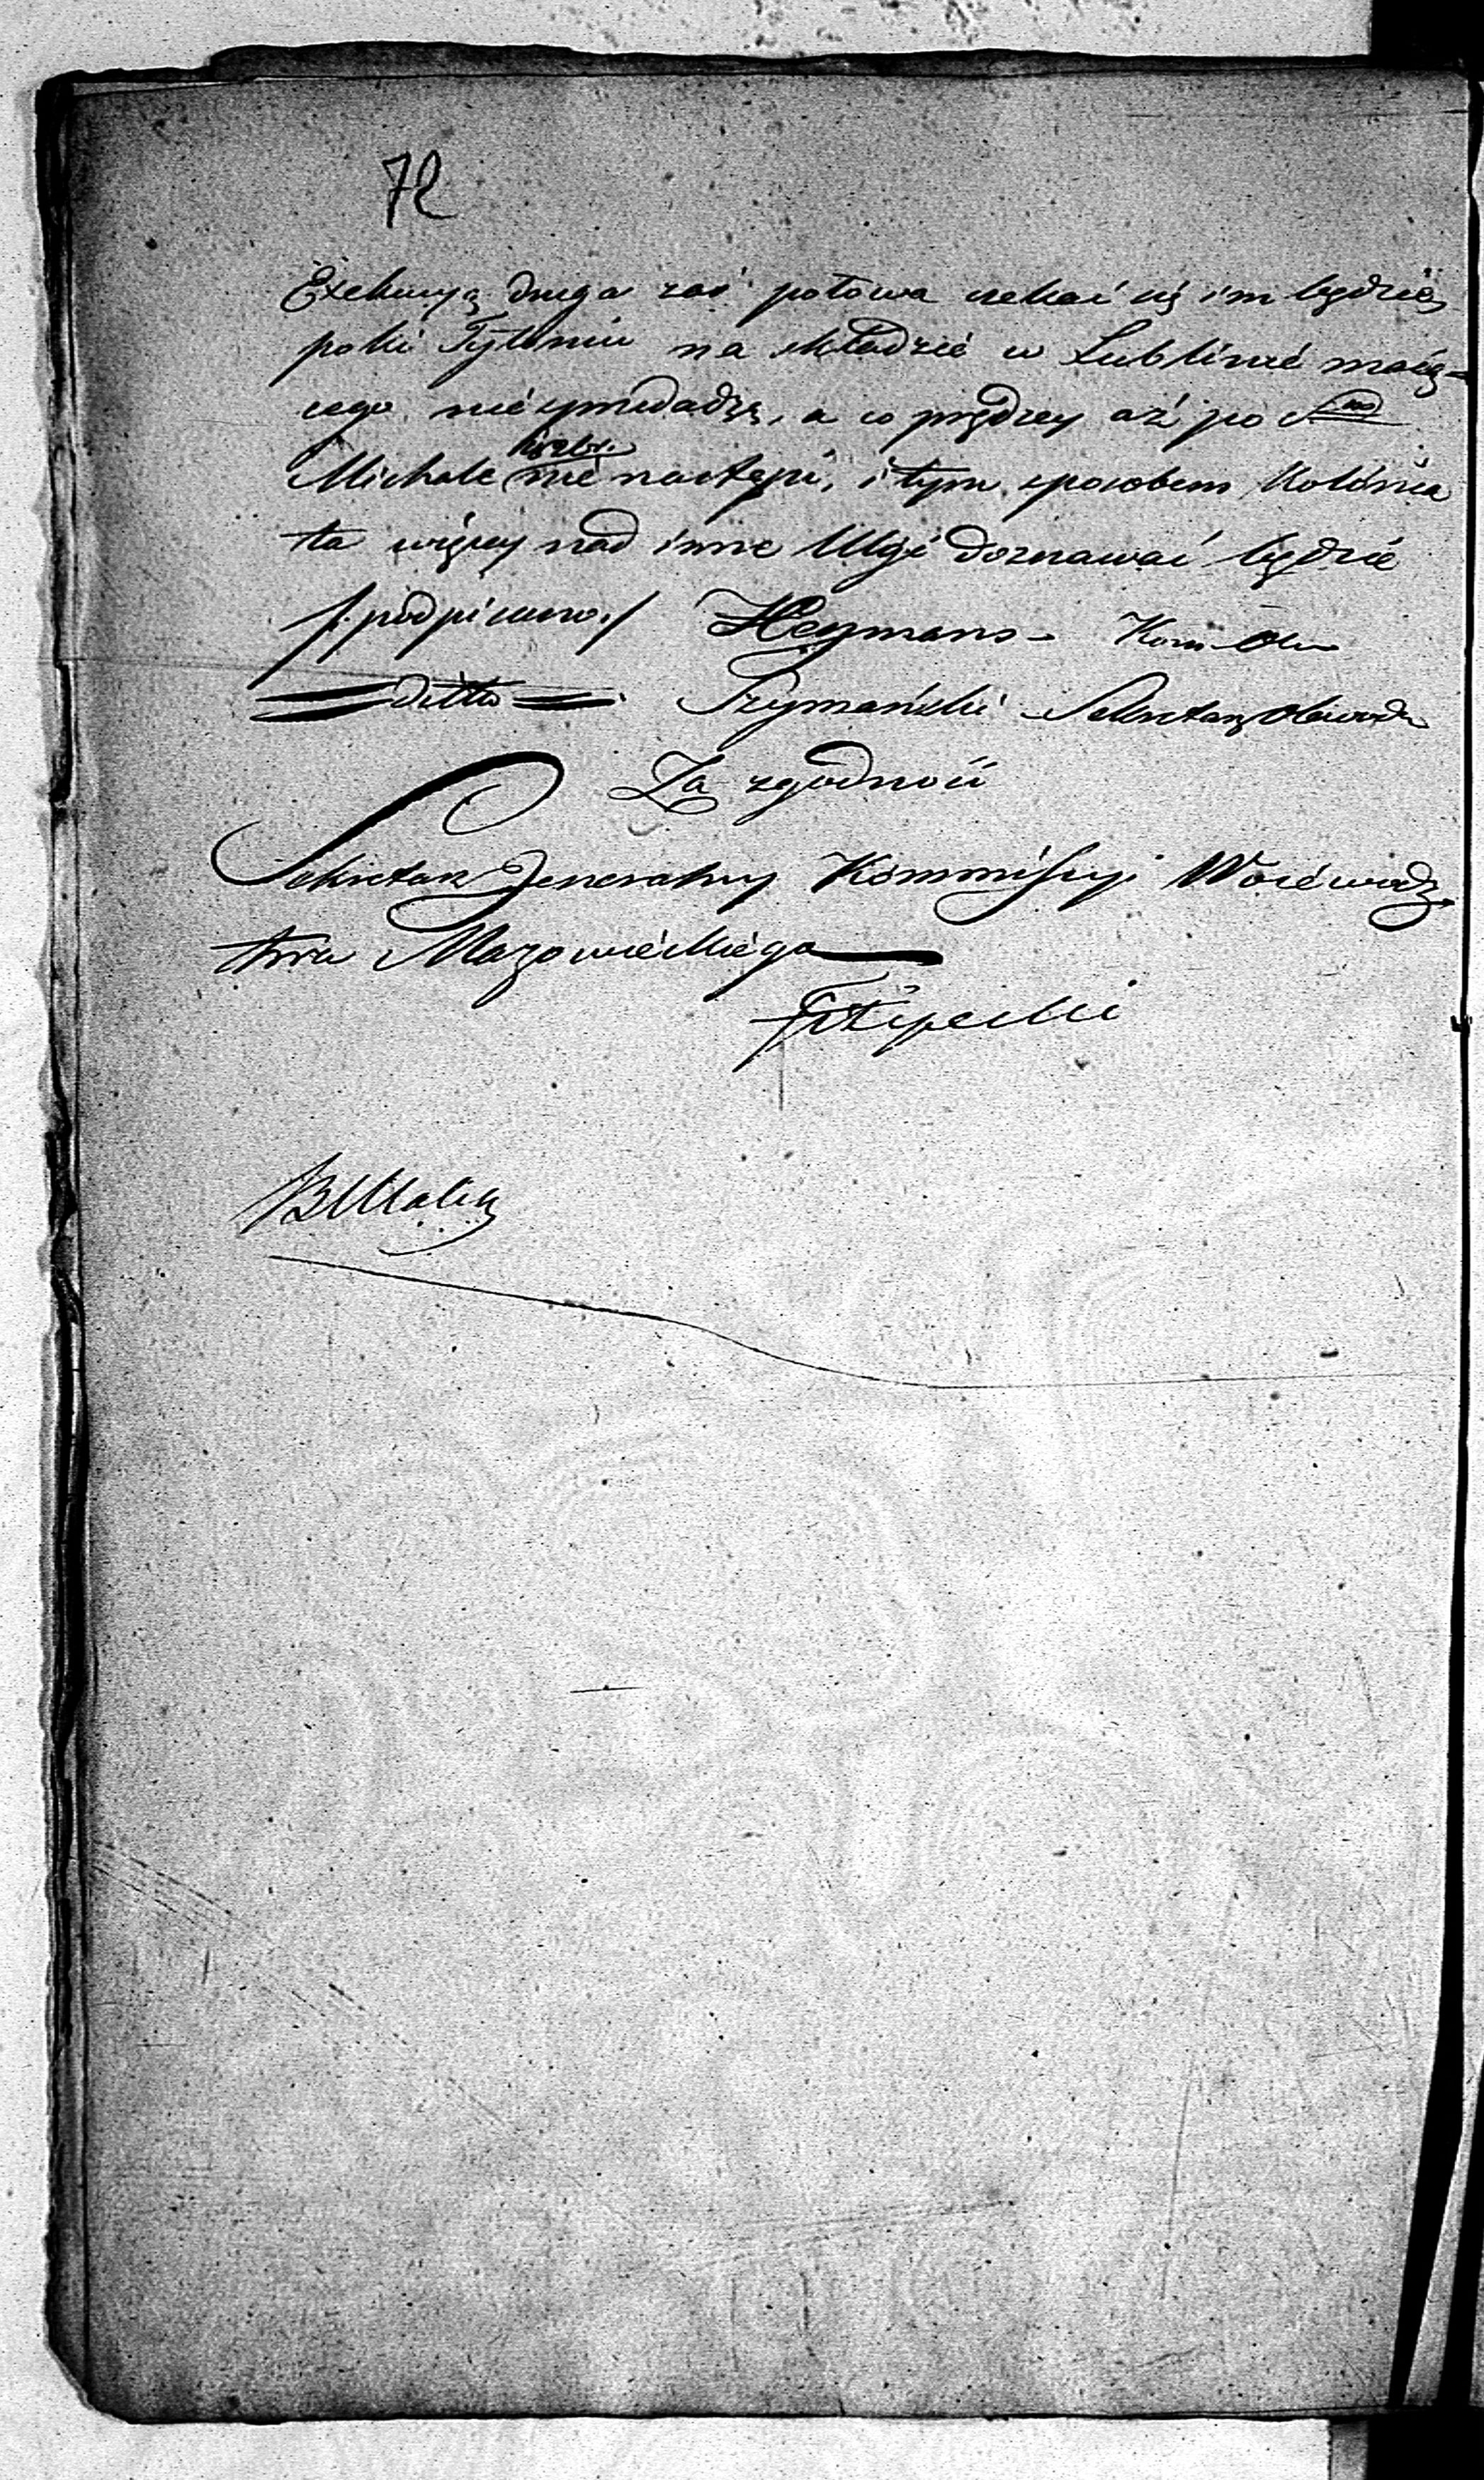 72
Exekucyą druga zaś połowa czekać się im będzie,
poki Tytoniu na składzie w Lublinie maią=
cego niesprzedadzą, a co prędzey aż po
Michale nie nastąpi, i tym sposobem Kolonia
ta więcey nad inne Ulgi doznawać będzie
/:podpisano:/ Heymans - Kom: Obw
ditto Szymański Sekretarz Obwodu
Za zgodność
Sekretarz Jeneralny Kommissyi Woiewódz
twa Mazowieckiego
Filipecki